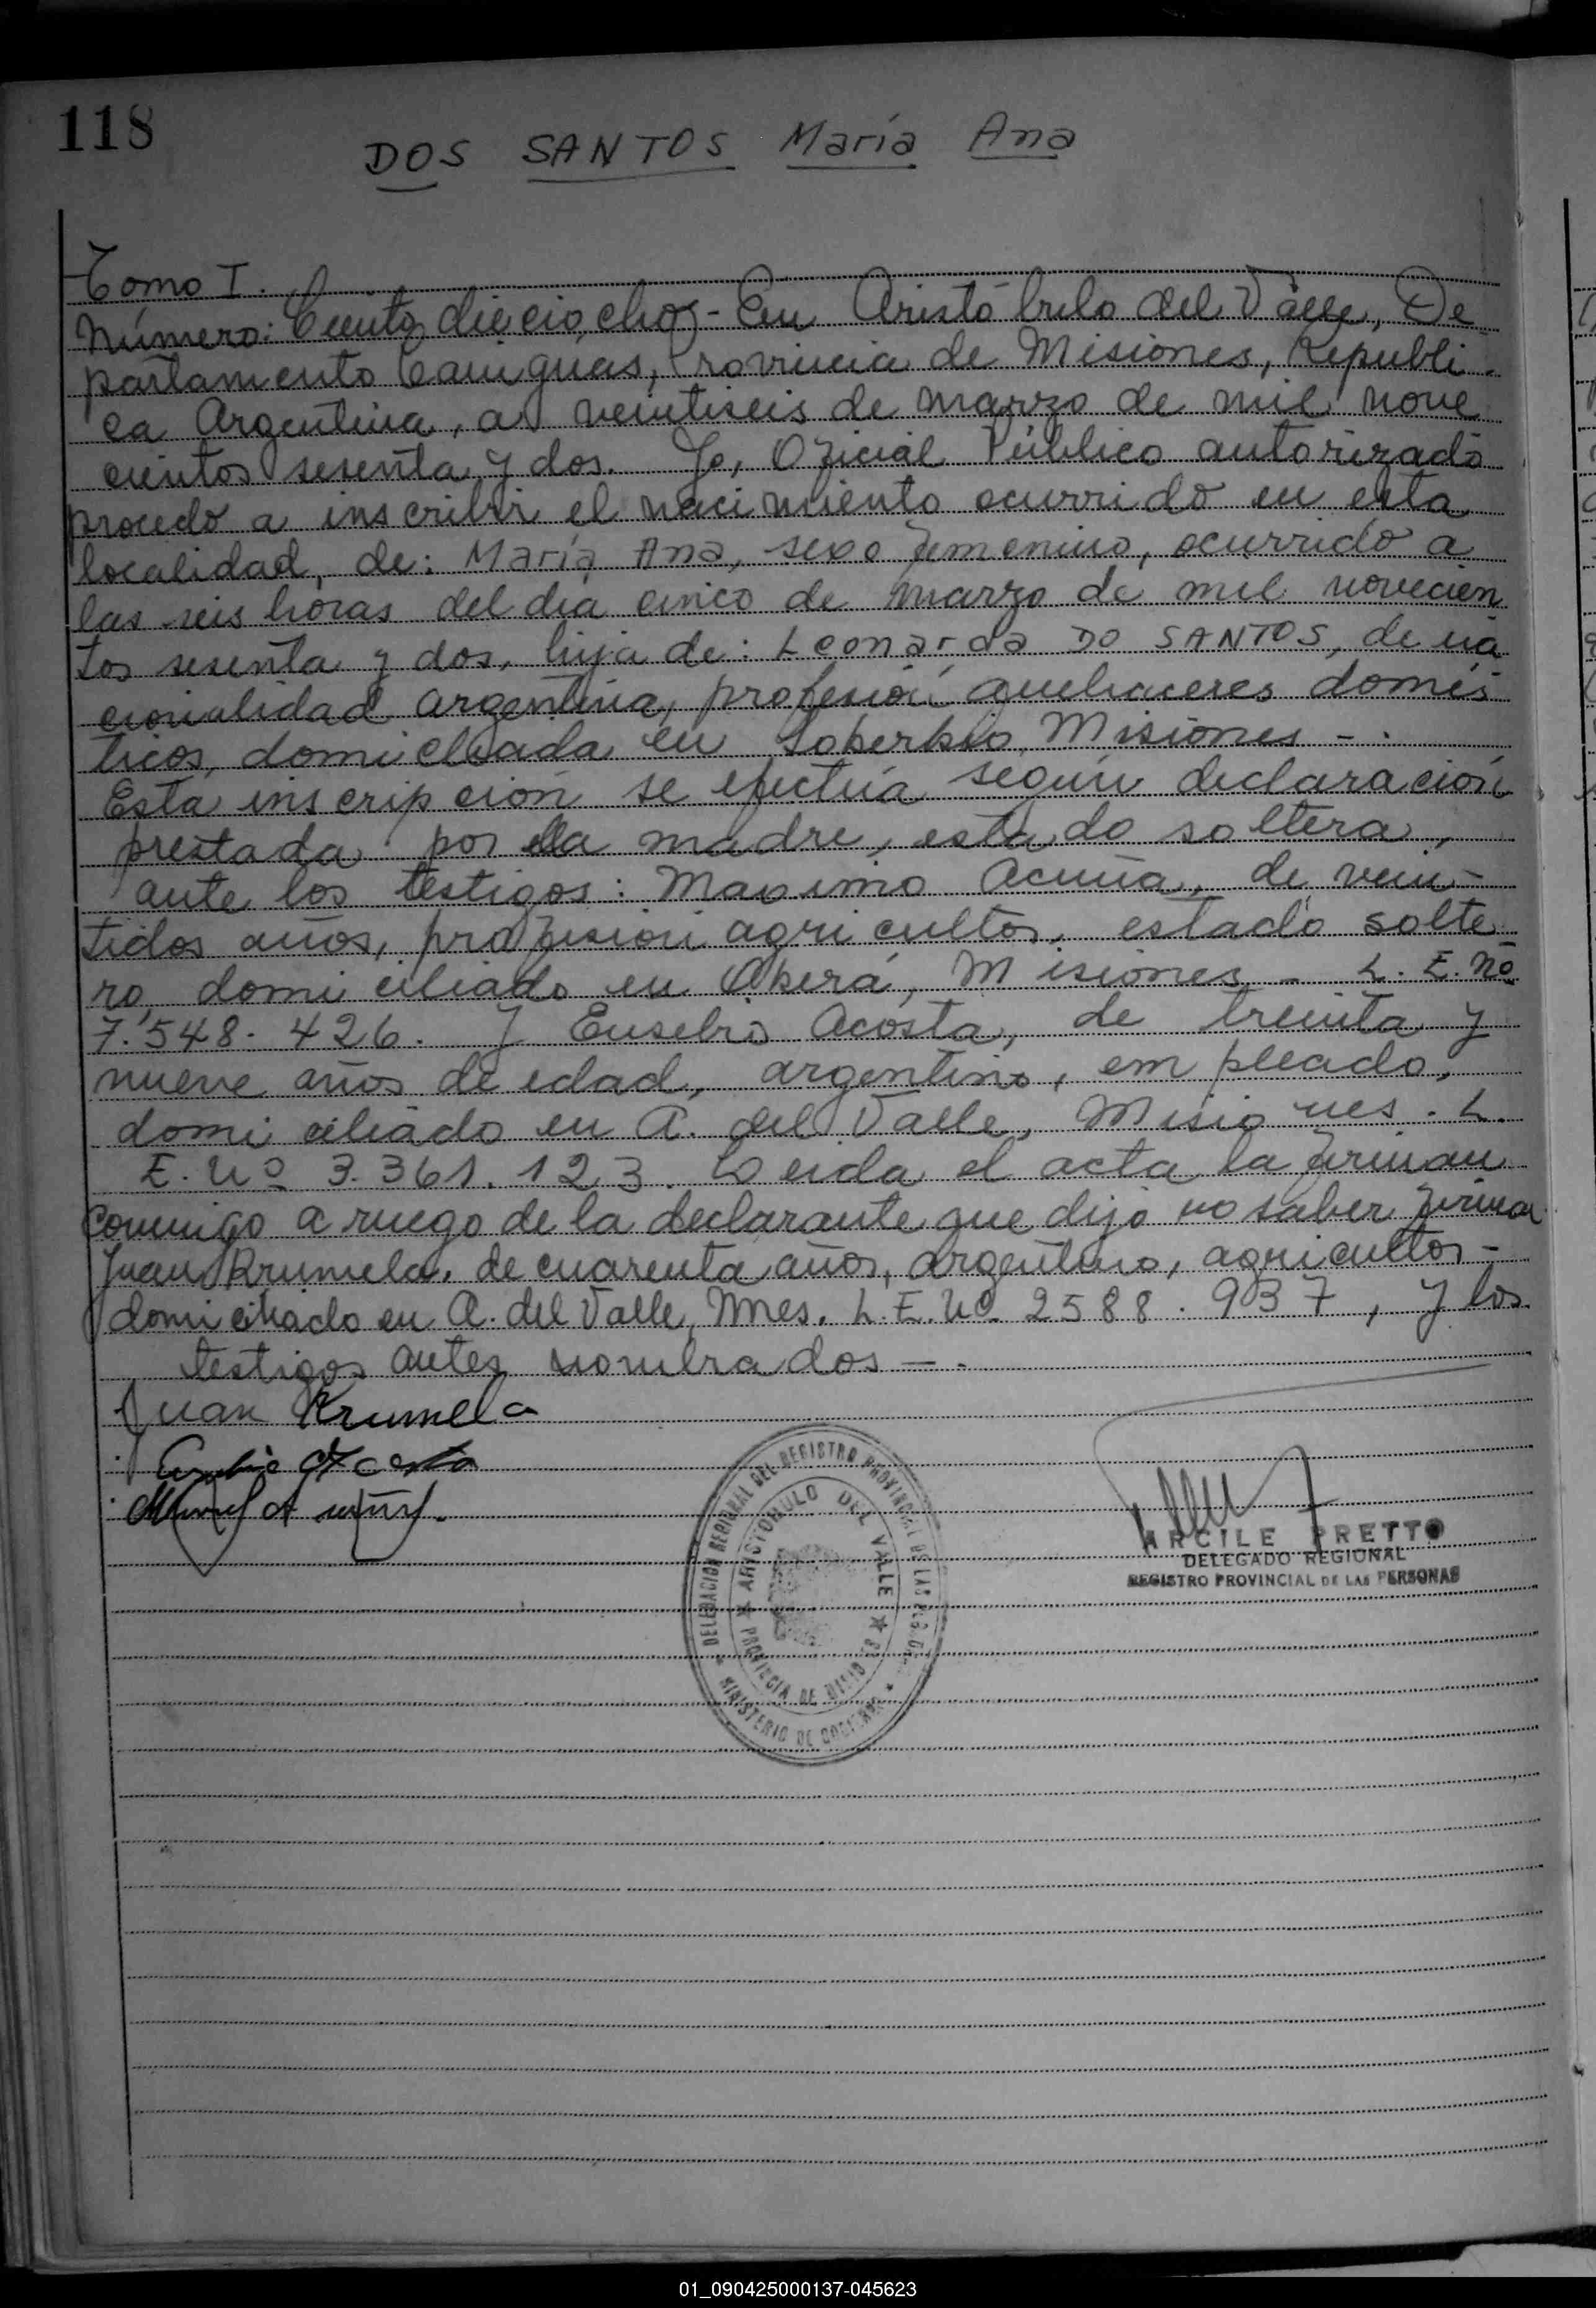 118
DOS SANTOS María Ana
Tomo I.
Número: Ciento dieciocho - En Aristóbulo del Valle, De
partamento Cainguás, Provincia de Misiones, Republi
ca Argentina, a veintiseis de marzo de mil nove
cientos sesenta y dos. Yo, Oficial Público autorizado
procedo a inscribir el nacimiento ocurrido en esta
localidad, de: María Ana, sexo femenino, ocurrido a
las seis horas del día cinco de marzo de mil novecien
tos sesenta y dos, hija de: Leonarda DO SANTOS, de na
cionalidad argentina, profesión quehaceres domés
ticos, domiciliada en Soberbio, Misiones - .
Esta inscripción se efectúa según declaración
prestada por la madre, estado soltera,
ante los testigos: Maximo Acuña, de vein-
tidos años, profesión agricultor, estado solte
ro, domiciliado en Oberá, Misiones - L. E. Nº
7.548.426. y Eusebio Acosta, de treinta y
nueve años de edad, argentino, empleado,
domiciliado en A. del Valle, Misiones. L.
E. Nº 3.361.123. Leida el acta la firman
conmigo a ruego de la declarante que dijo no saber firmar
Juan Krumela, de cuarenta años, argentino, agricultor -
domiciliado en A. del Valle, Mnes. L. E. Nº 2588.937, y los
testigos antes nombrados - .
Juan Krumela
Eusebio Acosta
DELEGACION REGIONAL DEL REGISTRO PROVINCIAL DE LAS
ARISTOBULO DEL VALLE
PROVINCIA DE MISIONES
MINISTERIO DE GOBIERNO
ARCILE PRETTO
DELEGADO REGIONAL
REGISTRO PROVINCIAL DE LAS PERSONAS
01_090425000137-045623